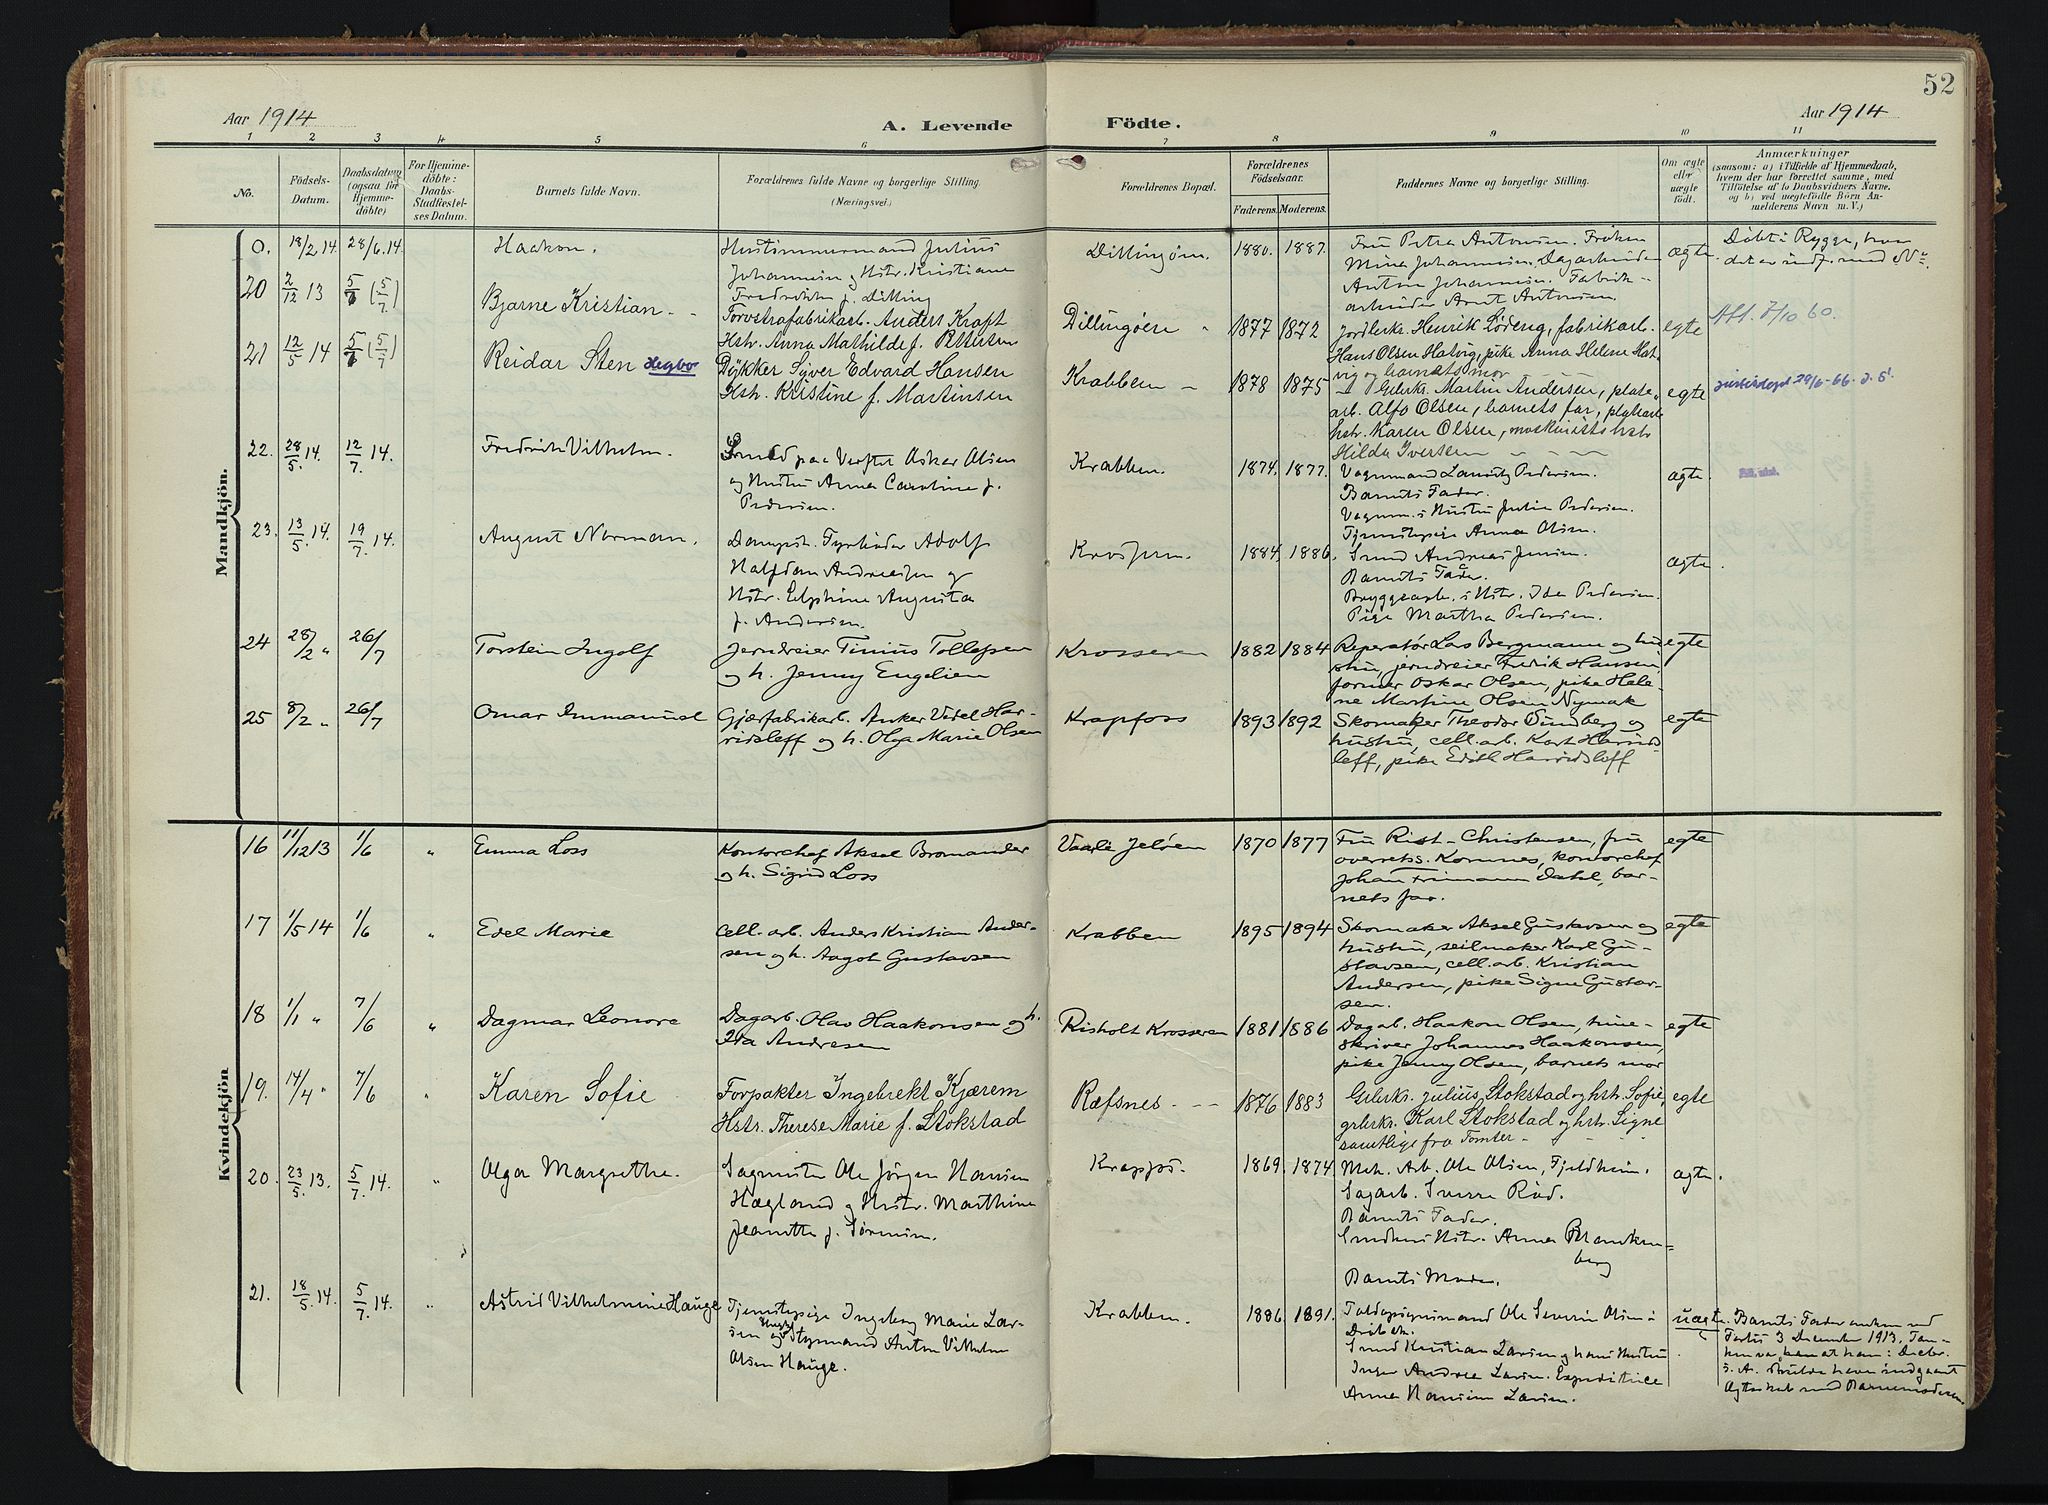 52
Aar 1914
A. Levende Födte.
Aar 1914
1 2 3 4 5 6 7 8 9 10 11
No.
Födsels-Datum.
Daabsdatum (ogsaa for Hjemme-döbte)
For Hjemme-döbte: Daabs-Stadfestel-ses Datum.
Barnets fulde Navn.
Forældrenes fulde Navne og borgerlige Stilling.
(Næringsvei.)
Forældrenes Bopæl.
Forældrenes Födselsaar.
Faderens. Moderens.
Faddernes Navne og borgerlige Stilling.
Om ægte eller uægte födt.
Anmærkninger
(saasom: a) i Tilfælde af Hjemmedaab,
hvem der har forrettet samme, med
Tilföielse af to Daabsvidners Navne,
og b) ved uegtefödte Börn An-
melderens Navn m. V.)
Mandkjön.
0. 18/2 14. 28/6. 14. Haakon.
Hustömmermand Julius
Johannesen og Hstr. Kristiane
Fredrikke f. Dilling
Dillingøen. 1880. 1887.
Fru Petra Antonsen. Frøken
Mina Johannesen. Dagarbeider
Anton Johannesen. Fabrik-
arbeider Arnt Antonsen.
ægte.
Døbt i Rygge, hvor
det er indf. med No.
20 2/12 13 5/7 (5/7) Bjarne Kristian - -
Torvstrøfabrikarb. Anders Kraft
Hstr. Anna Mathilde f. Pettersen
Dillingøen 1877 1872
Jordbrkr. Henrik Løderg, fabrikarb.
Hans Olsen Hatvig, pike Anna Helene Hat-
vig og barnets mor
egte
Att. 7/10 60.
21 12/5 14 5/7 (5/7) Reidar Sten Hegbo
Dykker Syver Edvard Hansen
Hstr. Kristine f. Martinsen
Krabben - 1878 1875
Grbrkr. Martin Andersen, plate-
arb. Alfo Olsen, barnets far, platearb.
hstr. Karen Olsen, maskinists hstr
Hilda Iversen
egte
29/6-66.
22. 28/5. 14. 12/7. 14. Fredrik Vilhelm.
Smed paa Verftet Oskar Olsen
og Hustru Anna Caroline f.
Pedersen.
Krabben. 1874. 1877.
Vognmand Lauritz Pedersen.
Barnets Fader.
Vognm.s Hustru Julie Pedersen.
Tjenestepige Anna Olsen.
ægte.
23. 13/5. 14. 19/7. 14. August Norman.
Dampsk. Fyrbøder Adolf
Halfdan Andreassen og
Hstr. Elphine Augusta
f. Andersen.
Krosseren. 1884. 1886.
Smed Andreas Jensen.
Barnets Fader.
Bryggearb.s Hstr. Ida Pedersen.
Pige Martha Pedersen.
ægte.
24 28/2 " 26/7 Torstein Ingolf
Jerndreier Tinius Tollefsen
og h. Jenny Engelien
Krosseren 1882 1884
Reperatør Lars Bergmann og hu-
stru, jerndreier Fredrik Hansen,
former Oskar Olsen, pike Hele-
ne Martine Olsen Nymak
egte
25 8/2 " 26/7 Omar Immanuel
Gjærfabrikarb. Anker Vedel Har-
ridsleff og h. Olga Marie Olsen
Krapfoss 1893 1892
Skomaker Theodor Sundberg og
hustru, cell. arb. Karl Harrids-
leff, pike Edith Harridsleff
egte
Kvindekjön
16 11/12 13 1/6 " Emma Loss
Kontorchef Aksel Bromander
og h. Sigrid Loss
Vaarli Jeløen 1870 1877
Fru Rist-Christensen, fru
overretss. Komnes, kontorchef
Johan Frimann Dahl, bar-
nets far.
egte
17 1/5 14 1/6 " Edel Marie
Cell. arb. Anders Kristian Ander-
sen og h. Aagot Gustavsen
Krabben 1895 1894
Skomaker Aksel Gustavsen og
hustru, seilmaker Karl Gu-
stavsen, cell. arb. Kristian
Andersen, pike Signe Gustav-
sen.
egte
18 1/1 " 7/6 " Dagmar Leonore
Dagarb. Olav Haakonsen og h.
Ida Andresen
Risholt Krosseren 1881 1886
Dagarb. Haakon Olsen, mine-
skriver Johannes Haakonsen,
pike Jenny Olsen, barnets mor
egte
19. 14/4 " 7/6 " Karen Sofie
Forpakter Ingebrekt Kjærem
Hstr. Therese Marie f. Stokstad
Ræfsnes - - 1876 1883
Grbrkr. Julius Stokstad og hstr. Sofie,
grbrkr. Karl Stokstad og hstr. Signe
samtlige fra Tomter -
egte
20. 23/5. 13. 5/7. 14. " Olga Margrethe.
Sagmester Ole Jørgen Hansen
Hægland og Hstr. Marthine
Jeanette f. Sørensen.
Krapfos. 1869. 1874.
Mek. Arb. Ole Olsen, Fjeldheim.
Sagarb. Sverre Rød.
Barnets Fader.
Smedens Hstr. Anna Blanken-
berg
Barnets Moder.
ægte.
21. 18/5. 14. 5/7. 14. " Astrid Vilhelmine Hauge
Tjenestepige Ingeborg Marie Lar-
sen og Styrmand Anton Vilhelm
Olsen Hauge.
Krabben. 1886. 1891.
Toldopsynsmand Ole Severin Olsen i
Drøbak.
Smed Kristian Larsen og hans Hustru
Inger Andrea Larsen. Expeditrice
Anna Hansine Larsen.
uægte.
Barnets Fader omkom ved
Forlis 3 December 1913. Tan-
ken var, han at han i Decbr.
s. A. skulde have indgaaet
Ægteskab med Barnemoderen.